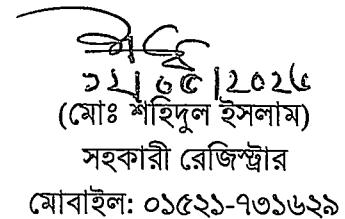 ১২/০৫/2025
(মোঃ শহিদুল ইসলাম)
সহকারী রেজিস্ট্রার
মোবাইল: ০১৫২১-৭৩১৬২৯